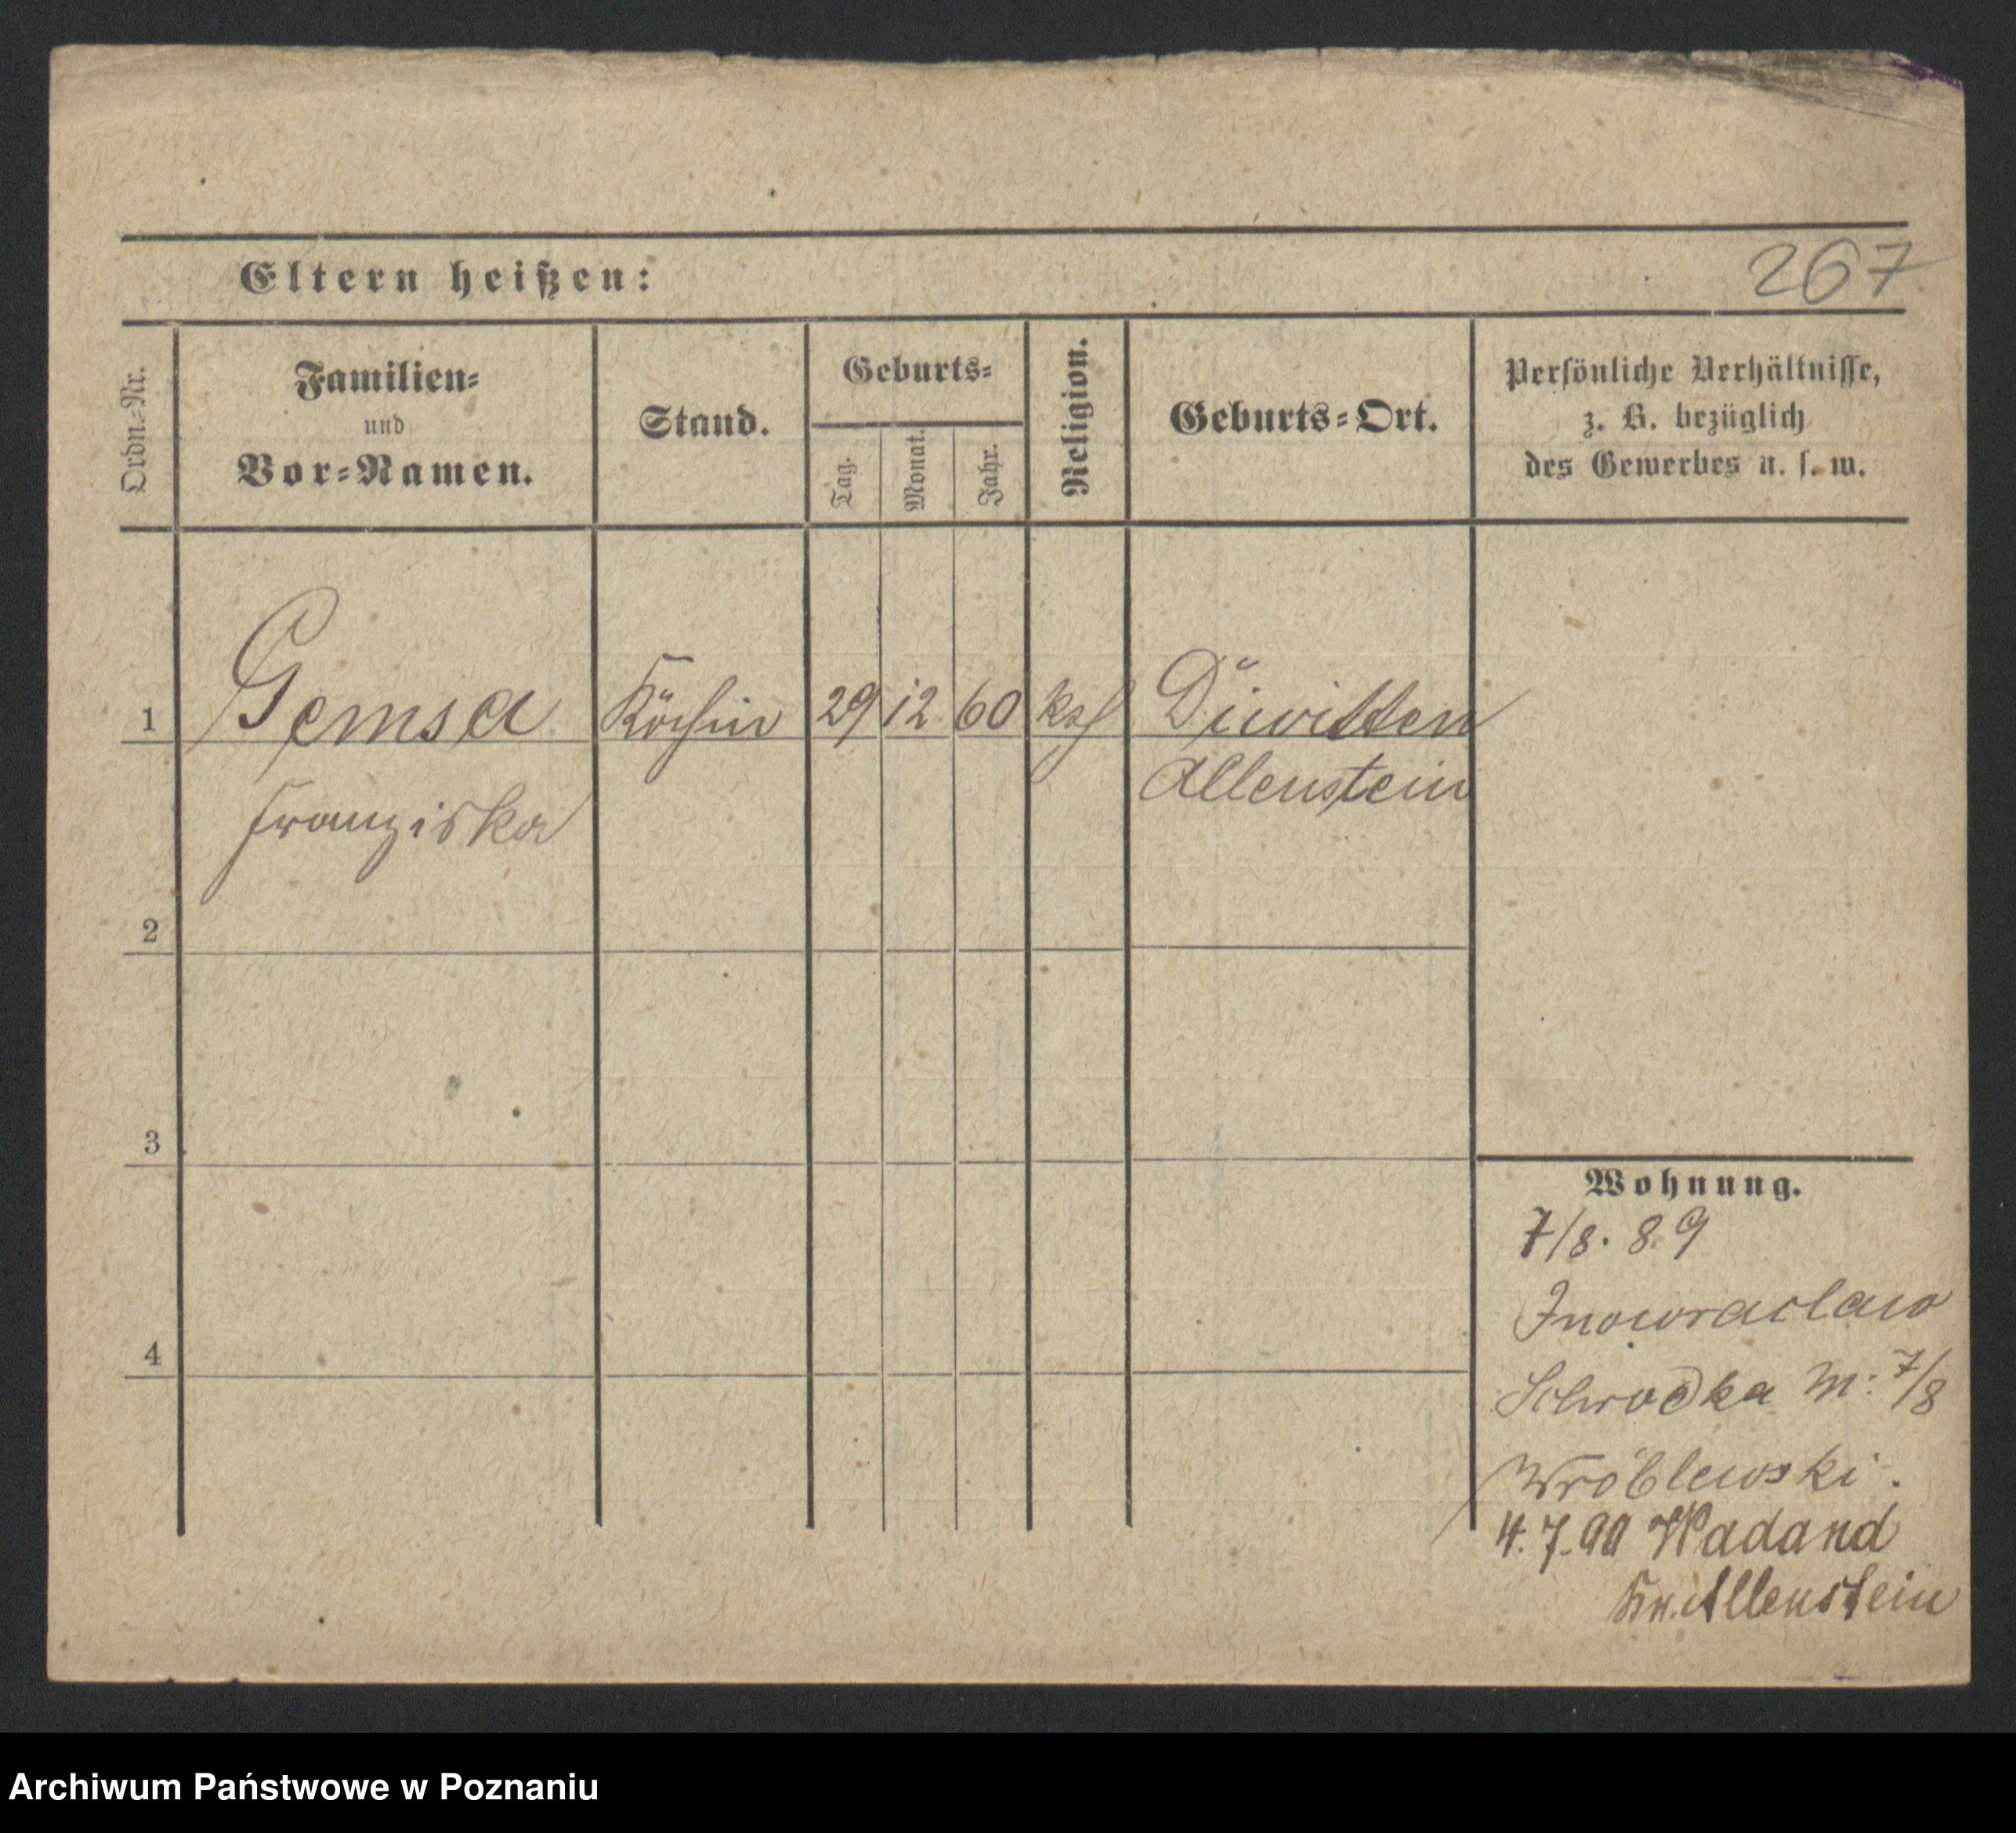 267
Eltern heißen:
Ordn.-Nr.
Familien-
und
Vor-Namen.
Stand.
Geburts-
Tag.
Monat.
Jahr.
Religion.
Geburts-Ort.
Persönliche Verhältnisse,
z. B. bezüglich
des Gewerbes u. s. w.
1 Gemsa Köchin 29 12 60 kath Diwitten
Franziska Allenstein
2
3
4
Wohnung.
7/8. 89
Inowraclaw
Schrodka M: 7/8
Wróblewski.
4. 7. 90 Wadand
Kr. Allenstein
Archiwum Państwowe w Poznaniu